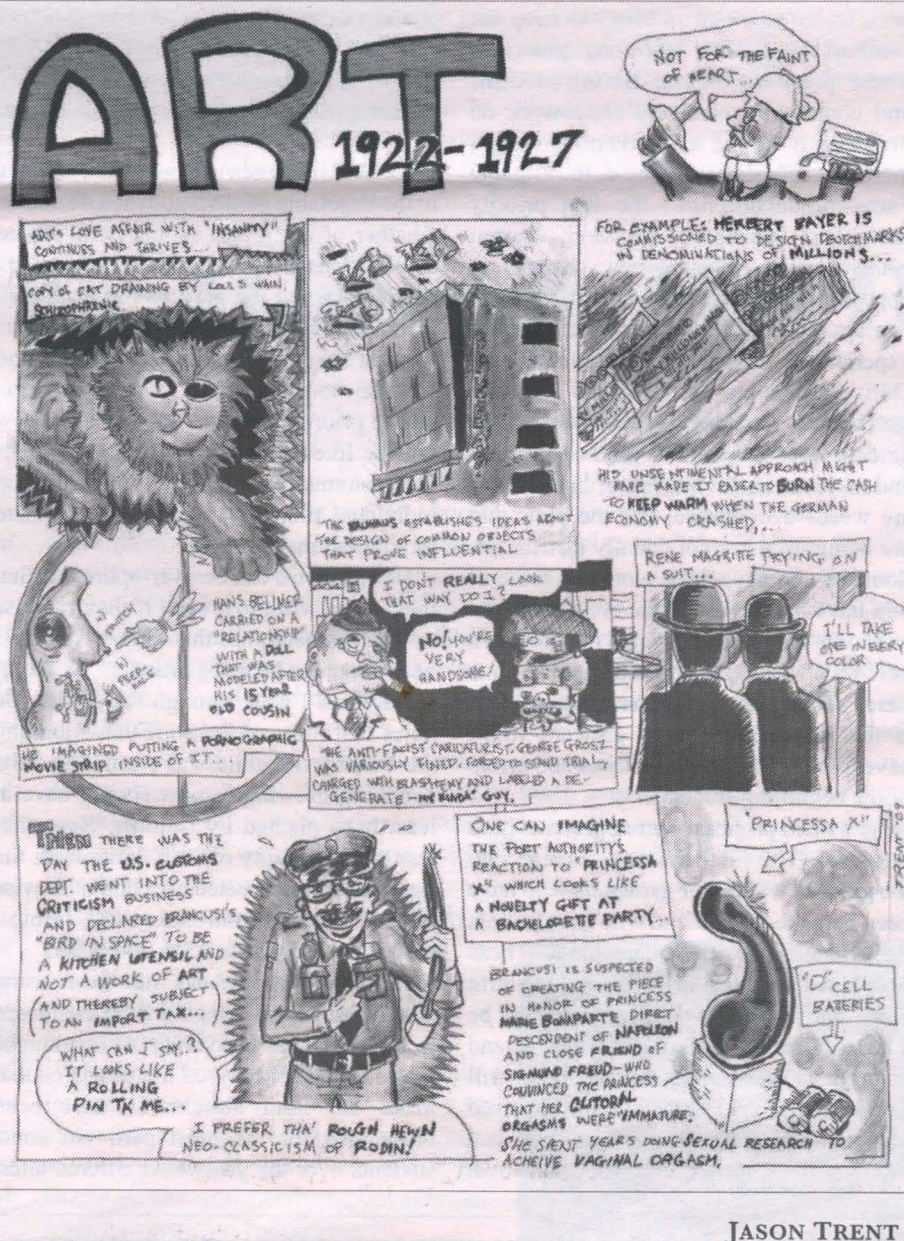 ART
1922-1927
NOT FOR THE FAINT
OF HEART...
ART'S LOVE AFFAIR WITH "INSANITY"
CONTINUES AND THRIVES...
COPY OF CAT DRAWING BY LOUIS WAIN,
SCHIZOPHRENIC
THE BAUHAUS ESTABLISHES IDEAS ABOUT
THE DESIGN OF COMMON OBJECTS
THAT PROVE INFLUENTIAL
FOR EXAMPLE: HERBERT BAYER IS
COMMISSIONED TO DESIGN DEUTCHMARKS
IN DENOMINATIONS OF MILLIONS...
HIS UNSENTIMENTAL APPROACH MIGHT
HAVE MADE IT EASER TO BURN THE CASH
TO KEEP WARM WHEN THE GERMAN
ECONOMY CRASHED...
HANS BELLMER
CARRIED ON A
"RELATIONSHIP"
WITH A DOLL
THAT WAS
MODELED AFTER
HIS 15 YEAR
OLD COUSIN
PEEP
HOLE
HE IMAGINED PUTTING A PORNOGRAPHIC
MOVIE STRIP INSIDE OF IT.
I DON'T REALLY LOOK
THAT WAY DO I?
NO! YOU'RE
VERY
HANDSOME!
THE ANTI-FACIST CARICATURIST GEORGE GROSZ
WAS VARIOUSLY FINED, FORCED TO STAND TRIAL,
CHARGED WITH BLASPHEMY AND LABELED A DE-
GENERATE - MY KINDA' GUY.
RENE MAGRITTE TRYING ON
A SUIT...
I'LL TAKE
ONE IN EVERY
COLOR
THEN THERE WAS THE
DAY THE U.S. CUSTOMS
DEPT. WENT INTO THE
CRITICISM BUSINESS
AND DECLARED BRANCUSI'S
"BIRD IN SPACE" TO BE
A KITCHEN UTENSIL AND
NOT A WORK OF ART
(AND THEREBY SUBJECT
TO AN IMPORT TAX...
WHAT CAN I SAY..?
IT LOOKS LIKE
A ROLLING
PIN TA ME...
I PREFER THA' ROUGH HEWN
NEO-CLASSICISM OF RODIN!
ONE CAN IMAGINE
THE PORT AUTHORITY'S
REACTION TO "PRINCESSA
X" WHICH LOOKS LIKE
A NOVELTY GIFT AT
A BACHELORETTE PARTY...
BRANCUSI IS SUSPECTED
OF CREATING THE PIECE
IN HONOR OF PRINCESS
MARIE BONAPARTE DIRECT
DESCENDENT OF NAPOLEON
AND CLOSE FRIEND OF
SIGMUND FREUD - WHO
CONVINCED THE PRINCESS
THAT HER CLITORAL
ORGASMS WERE "IMMATURE".
SHE SPENT YEARS DOING SEXUAL RESEARCH TO
ACHEIVE VAGINAL ORGASM.
"PRINCESSA X"
"D" CELL
BATERIES
TRENT
JASON TRENT